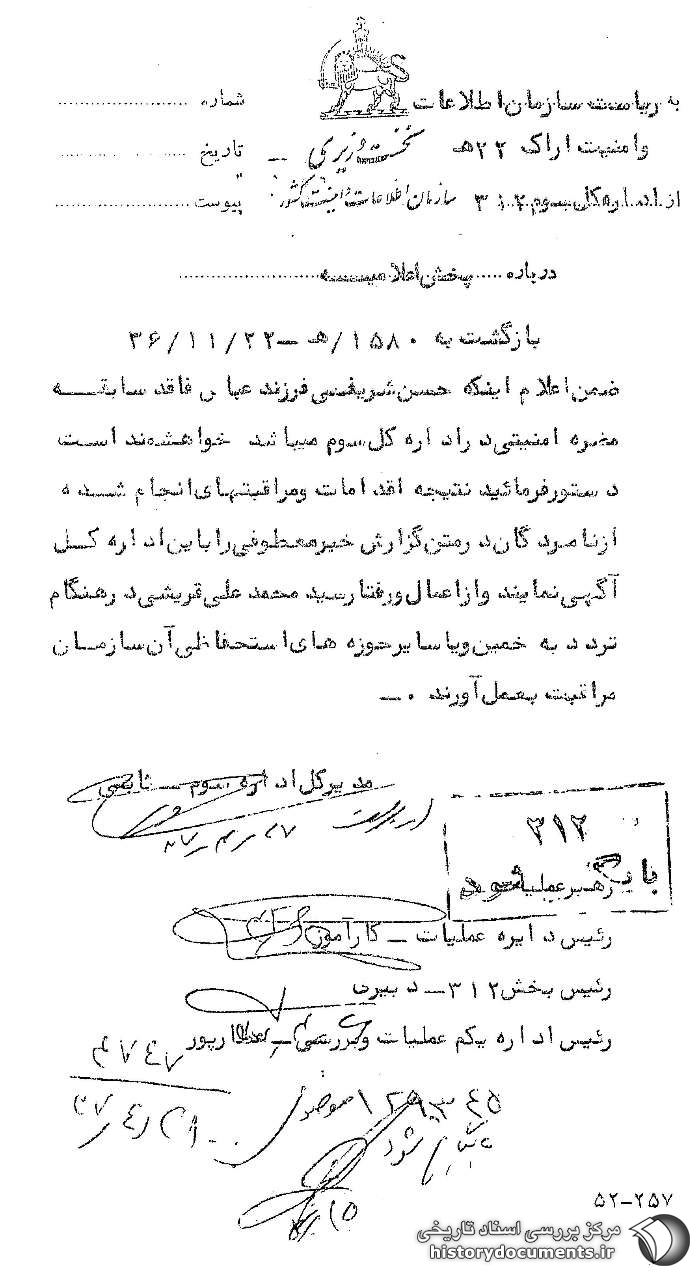 به ریاست سازمان اطلاعات
وامنیت اراک ۲۲هـ
از اداره کل سوم ۳۱۲
نخست وزیری
سازمان اطلاعات و امنیت کشور
شماره
تاریخ
پیوست
درباره پخش اعلامیه
بازگشت به ۱۵۸۰/هـ ـ ۳۶/۱۱/۲۲
ضمن اعلام اینکه حسن شریفی فرزند عباس فاقد سابقه
مضره امنیتی در اداره کل سوم میباشد خواهشمند است
دستور فرمائید نتیجه اقدامات ومراقبتهای انجام شده
از نامبردگان در متن گزارش خبر معطوفی را باین اداره کل
آگهی نمایند واز اعمال ورفتار سید محمد علی قریشی در هنگام
تردد به خمین ویا سایر حوزه های استحفاظی آن سازمان
مراقبت بعمل آورند ۰ــ
مدیرکل اداره سوم ــ ثابتی
۳۱۲
بایگانی شود
رهبر عملیات
رئیس دایره عملیات ــ کارآموز
رئیس بخش ۳۱۲ــ دبیری
رئیس اداره یکم عملیات وبررسی ــ عطارپور
۴۷۴۷
بایگانی شود
۵۲-۲۵۷
مرکز بررسی اسناد تاریخی
historydocuments.ir